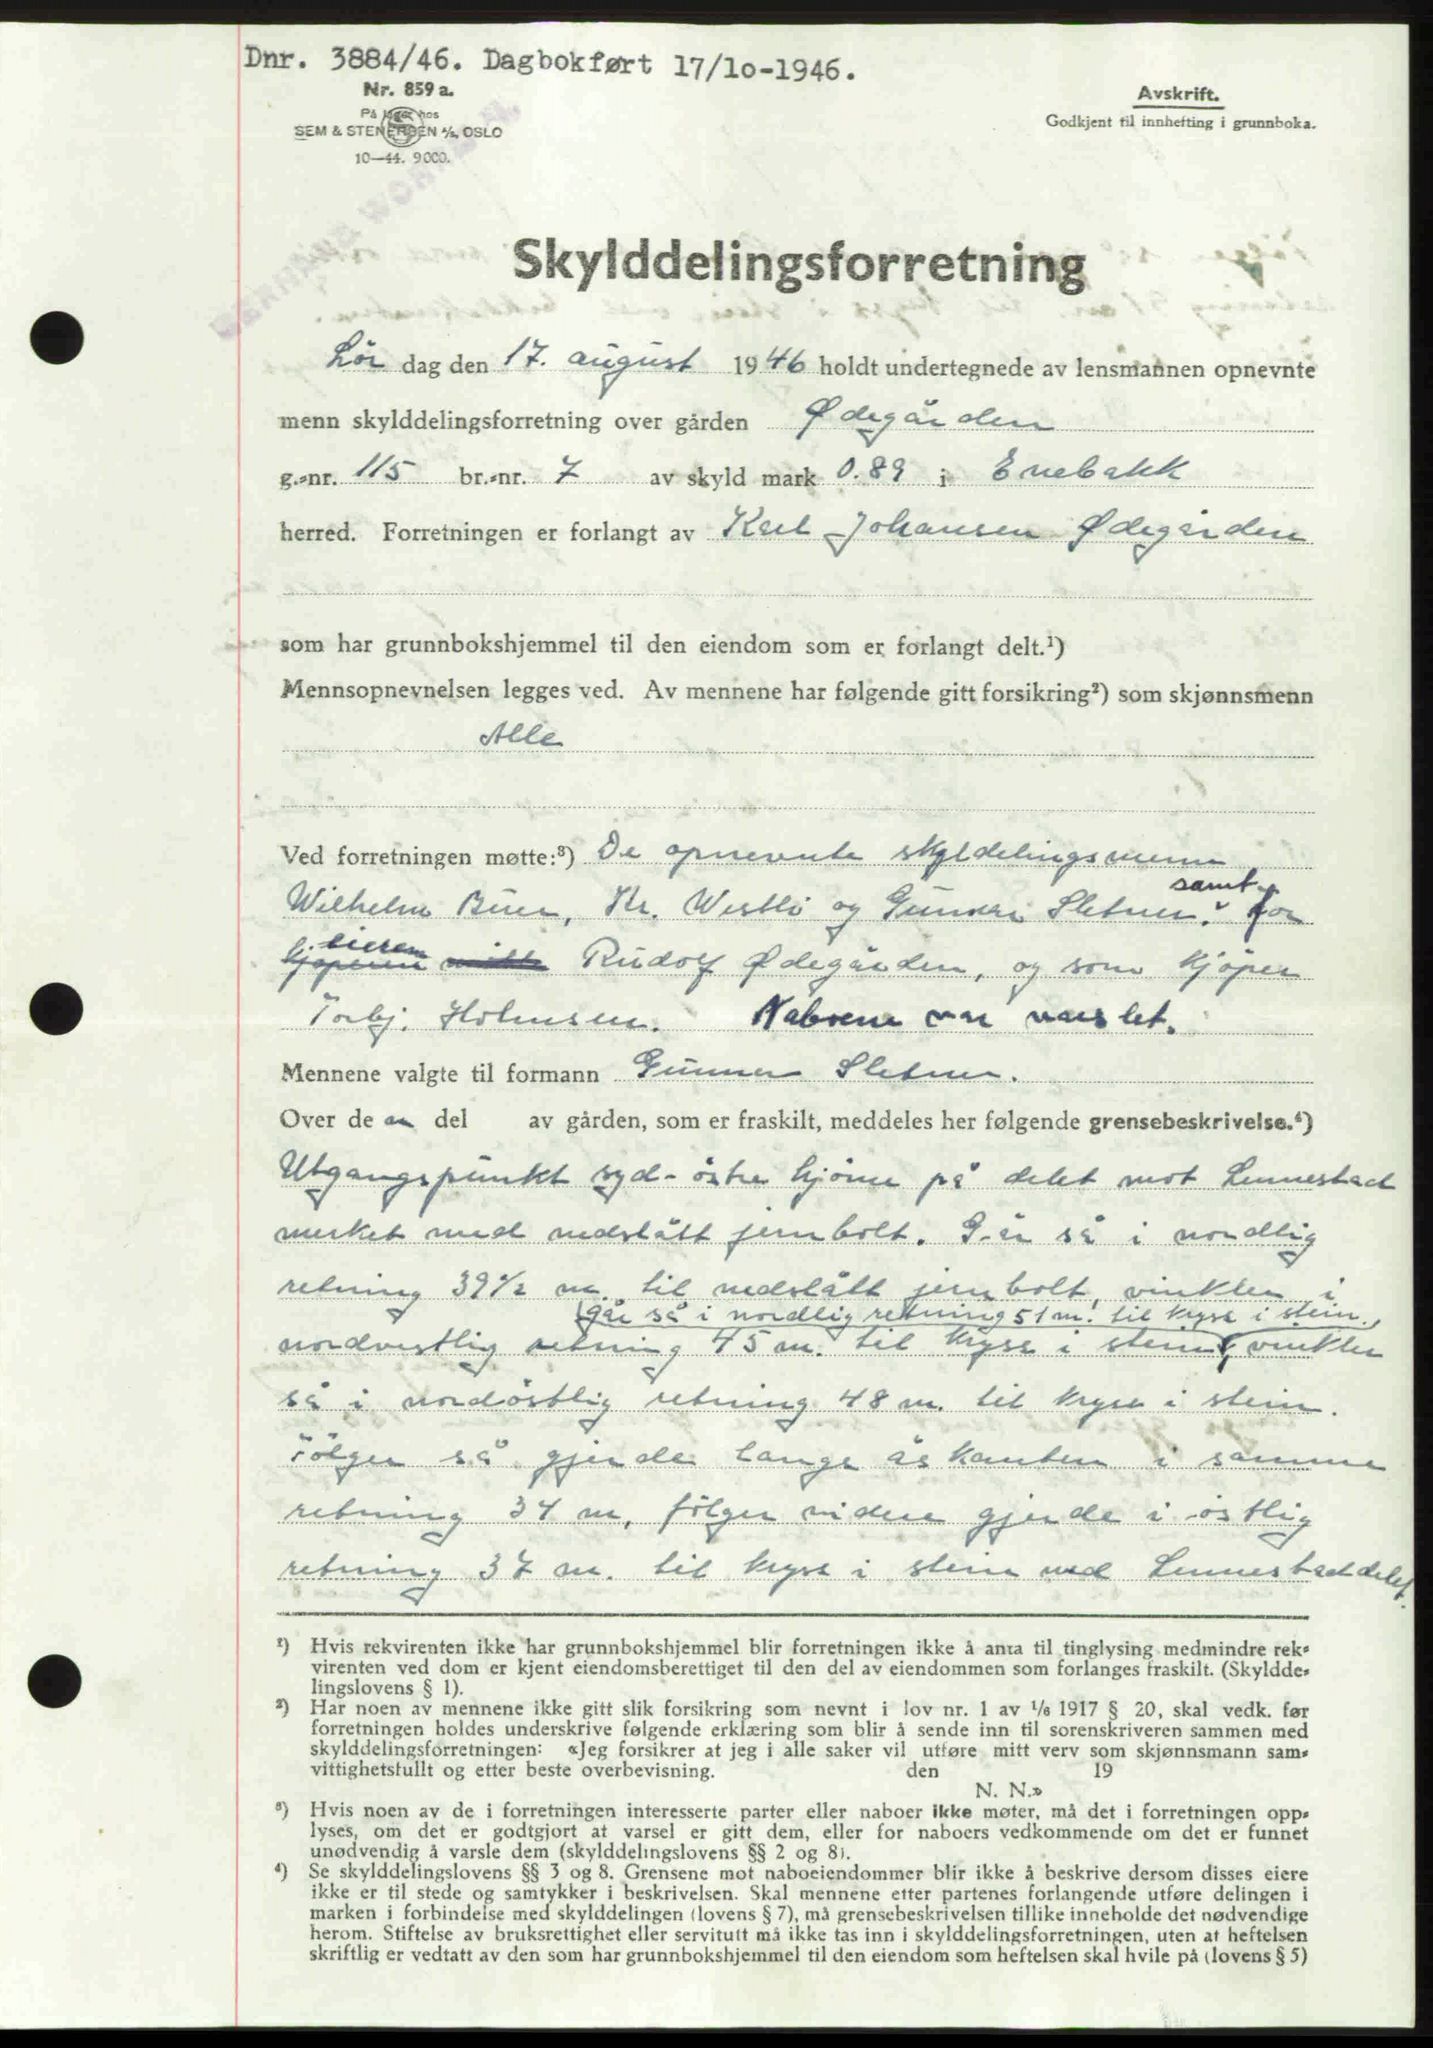 Dnr. 3884/46. Dagbokført 17/10-1946.
Nr. 859 a.
På lager hos
SEM & STENERSEN A/S, OSLO
10—44. 9000.
Avskrift.
Godkjent til innhefting i grunnboka.
Skylddelingsforretning
Lör dag den 17. august 1946 holdt undertegnede av lensmannen opnevnte
menn skylddelingsforretning over gården Ødegården
g.-nr. 115 br.-nr. 7 av skyld mark 0.89 i Enebakk
herred. Forretningen er forlangt av Karl Johansen Ødegården
som har grunnbokshjemmel til den eiendom som er forlangt delt.¹)
Mennsopnevnelsen legges ved. Av mennene har følgende gitt forsikring²) som skjønnsmenn
Alle
Ved forretningen møtte:³) De opnevnte skyldelingsmenn
samt
Wilhelm Buer, Kr. Westli og Gunnar Sletner. for
eieren
kjøperen Rudolf Ødegården, og som kjöper
Torbj. Holmsen. Naboene var varslet.
Mennene valgte til formann Gunnar Sletner.
Over de en del av gården, som er fraskilt, meddeles her følgende grensebeskrivelse.⁴)
Utgangspunkt syd-östre hjörne på delet mot Lennestad
merket med nedslått jernbolt. Går så i nordlig
retning 39½ m. til nedslått jernbolt, vinkler i
går så i nordlig retning 51 m. til kryss i stein,
nordvestlig retning 45 m. til kryss i stein, vinkler
så i nordöstlig retning 48 m. til kryss i stein.
Fölger så gjerde langs åskanten i samme
retning 34 m, fölger videre gjerde i östlig
retning 37 m. til kryss i stein ved Lennestaddelet.
¹) Hvis rekvirenten ikke har grunnbokshjemmel blir forretningen ikke å anta til tinglysing medmindre rek-
virenten ved dom er kjent eiendomsberettiget til den del av eiendommen som forlanges fraskilt. (Skyldde-
lingslovens § 1).
²) Har noen av mennene ikke gitt slik forsikring som nevnt i lov nr. 1 av 1/6 1917 § 20, skal vedk. før
forretningen holdes underskrive følgende erklæring som blir å sende inn til sorenskriveren sammen med
skylddelingsforretningen: «Jeg forsikrer at jeg i alle saker vil utføre mitt verv som skjønnsmann sam-
vittighetsfullt og etter beste overbevisning. den 19
N. N.»
³) Hvis noen av de i forretningen interesserte parter eller naboer ikke møter, må det i forretningen opp-
lyses, om det er godtgjort at varsel er gitt dem, eller for naboers vedkommende om det er funnet
unødvendig å varsle dem (skylddelingslovens §§ 2 og 8).
⁴) Se skylddelingslovens §§ 3 og 8. Grensene mot naboeiendommer blir ikke å beskrive dersom disses eiere
ikke er til stede og samtykker i beskrivelsen. Skal mennene etter partenes forlangende utføre delingen i
marken i forbindelse med skylddelingen (lovens § 7), må grensebeskrivelsen tillike inneholde det nødvendige
herom. Stiftelse av bruksrettighet eller servitutt må ikke tas inn i skylddelingsforretningen, uten at heftelsen
skriftlig er vedtatt av den som har grunnbokshjemmel til den eiendom som heftelsen skal hvile på (lovens § 5)